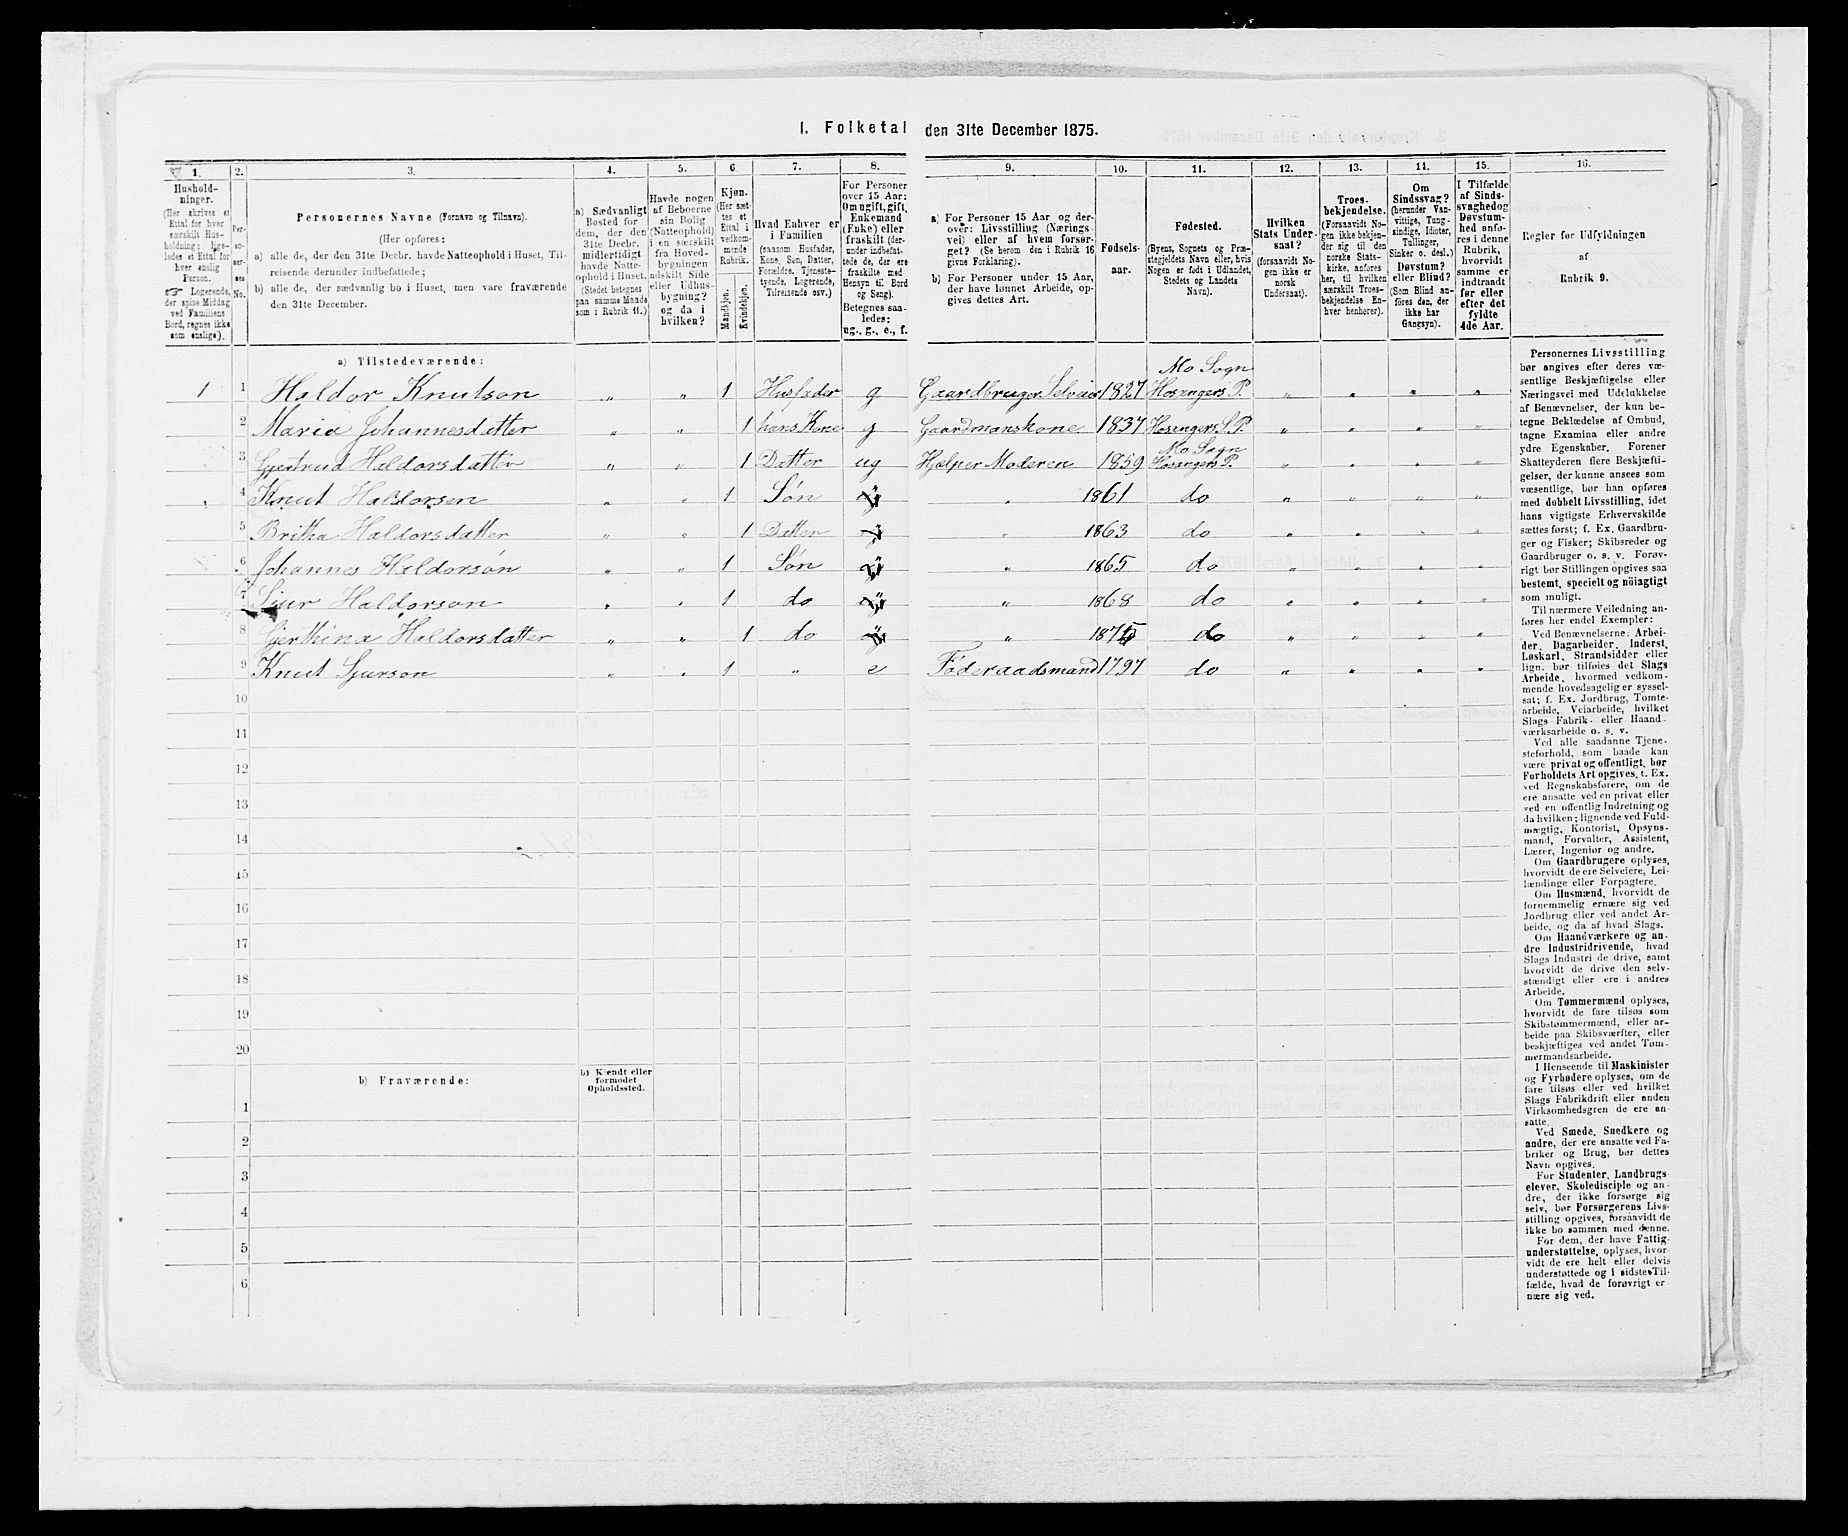 1. Folketal den 31te December 1875.
1. 2. 3. 4. 5. 6. 7. 8. 9. 10. 11. 12. 13. 14. 15. 16.
Hushold-
ninger.
(Her skrives et
Ettal for hver
særskilt Hus-
holdning; lige-
ledes et Ettal for
hver enslig
Person.
☞ Logerende,
der spise Middag
ved Familiens
Bord, regnes ikke
som enslige).
Per-
so-
ner-
nes
No.
Personernes Navne (Fornavn og Tilnavn).
(Her opføres:
a) alle de, der den 31te Decbr. havde Natteophold i Huset, Til-
reisende derunder indbefattede;
b) alle de, der sædvanlig bo i Huset, men vare fraværende
den 31te December.
a) Sædvanligt
Bosted for
dem, der den
31te Decbr.
midlertidigt
havde Natte-
ophold i Huset.
(Stedet betegnes
paa samme Maade
som i Rubrik 11.)
Havde nogen
af Beboerne
sin Bolig
(Natteophold)
i en særskilt
fra Hoved-
bygningen
adskilt Side
eller Udhus-
bygning?
og da i
hvilken?
Kjøn.
(Her sæt-
tes et
Ettal i
vedkom-
mende
Rubrik.
Mandkjøn.
Kvindekjøn.
Hvad Enhver er
i Familien
(saasom Husfader,
Kone, Søn, Datter,
Forældre, Tjeneste-
tyende, Logerende,
Tilreisende osv.)
For Personer
over 15 Aar:
Om ugift, gift,
Enkemand
(Enke) eller
fraskilt (der-
under indbefat-
tede de, der ere
fraskilte med
Hensyn til Bord
og Seng).
Betegnes saa-
ledes:
ug., g., e., f.
a) For Personer 15 Aar og der-
over: Livsstilling (Nærings-
vei) eller af hvem forsør-
get? (Se herom den i Rubrik 16
givne Forklaring).
b) For Personer under 15 Aar,
der have lønnet Arbeide, op-
gives dettes Art.
Fødsels-
aar.
Fødested.
(Byens, Sognets og Præ-
stegjeldets Navn eller, hvis
Nogen er født i Udlandet,
Stedets og Landets
Navn).
Hvilken
Stats Under-
saat?
(forsaavidt No-
gen ikke er
norsk
Undersaat).
Troes-
bekjendelse.
(Forsaavidt No-
gen ikke bekjen-
der sig til den
norske Stats-
kirke, anføres
her, til hvilken
særskilt Troes-
bekjendelse En-
hver henhører).
Om
Sindssvag?
(herunder Van-
vittige, Tung-
sindige, Idioter,
Tullinger,
Sinker o. desl.)
Døvstum?
eller Blind?
(Som Blind an-
føres den, der
ikke har
Gangsyn).
I Tilfælde
af Sinds-
svaghed og
Døvstum-
hed anfø-
res i denne
Rubrik,
hvorvidt
samme er
indtraadt
før eller
efter det
fyldte
4de Aar.
Regler for Udfyldningen
af
Rubrik 9.
a) Tilstedeværende:
1 1 Haldor Knutson „ „ 1 Husfader g Gaardbruger Selveier 1827 Mo Sogn Hosengers P. „ „ „ „
2 Maria Johannesdatter „ „ 1 hans Kone g Gaardmanskone 1837 Hosengers S. P. „ „ „ „
3 Gjertrud Haldorsdatter „ „ 1 Datter ug Hjælper Moderen 1859 Mo Sogn Hosengers P. „ „ „ „
4 Knut Haldorsen „ „ 1 Søn „ „ 1861 do „ „ „ „
5 Britha Haldorsdatter „ „ 1 Datter „ „ 1863 do „ „ „ „
6 Johannes Haldorsøn „ „ 1 Søn „ „ 1865 do „ „ „ „
7 Sjur Haldorson „ „ 1 do „ „ 1868 do „ „ „ „
8 Gjerthina Haldorsdatter „ „ 1 do „ „ 1875 do „ „ „ „
9 Knut Sjurson „ „ 1 „ e Føderaadsmand 1797 do „ „ „ „
10
11
12
13
14
15
16
17
18
19
20
b) Fraværende:
b) Kjendt eller
formodet
Opholdssted.
1
2
3
4
5
6
Personernes Livsstilling
bør angives efter deres væ-
sentlige Beskjæftigelse eller
Næringsvei med Udelukkelse
af Benævnelser, der kun be-
tegne Beklædelse af Ombud,
tagne Examina eller andre
ydre Egenskaber. Forener
Skatteyderen flere Beskjæfti-
gelser, der kunne ansees som
væsentlige, bør han opføres
med dobbelt Livsstilling, idet
hans vigtigste Erhvervskilde
sættes først; f. Ex. Gaardbru-
ger og Fisker; Skibsreder og
Gaardbruger o. s. v. Forøv-
rigt bør Stillingen opgives saa
bestemt, specielt og nöiagtigt
som muligt.
Til nærmere Veiledning an-
føres her endel Exempler:
Ved Benævnelserne: Arbei-
der, Dagarbeider, Inderst,
Løskarl, Strandsidder eller
lign. bør tilføies det Slags
Arbeide, hvormed vedkom-
mende hovedsagelig er syssel-
sat; f. Ex. Jordbrug, Tomte-
arbeide, Veiarbeide, hvilket
Slags Fabrik- eller Haand-
værksarbeide o. s. v.
Ved alle saadanne Tjene-
steforhold, som baade kan
være privat og offentligt, bør
Forholdets Art opgives, t. Ex.
ved Regnskabsførere, om de
ere ansatte ved en privat eller
ved en offentlig Indretning og
da hvilken; lignende ved Fuld-
mægtig, Kontorist, Opsyns-
mand, Forvalter, Assistent,
Lærer, Ingeniør og andre.
Om Gaardbrugere oplyses,
hvorvidt de ere Selveiere, Lei-
lændinge eller Forpagtere.
Om Husmænd, hvorvidt de
fornemmelig ernære sig ved
Jordbrug eller ved andet Ar-
beide, og da af hvad Slags.
Om Haandværkere og an-
dre Industridrivende, hvad
Slags Industri de drive, samt
hvorvidt de drive den selv-
stændigt eller ere i andres
Arbeide.
Om Tømmermænd oplyses,
hvorvidt de fare tilsøs som
Skibstømmermænd, eller ar-
beide paa Skibsværfter, eller
beskjæftiges ved andet Tøm-
mermandsarbeide.
I Henseende til Maskinister
og Fyrbødere oplyses, om de
fare tilsøs eller ved hvilket
Slags Fabrikdrift eller anden
Virksomhedsgren de ere an-
satte.
Ved Smede, Snedkere og
andre, der ere ansatte ved Fa-
briker og Brug, bør dettes
Navn opgives.
For Studenter, Landbrugs-
elever, Skoledisciple og an-
dre, der ikke forsørge sig
selv, bør Forsørgerens Livs-
stilling opgives, forsaavidt de
ikke bo sammen med denne.
For dem, der have Fattig-
understøttelse, oplyses, hvor-
vidt de ere helt eller delvis
understøttede og i sidste Til-
fælde, hvad de forøvrigt er-
nære sig ved.